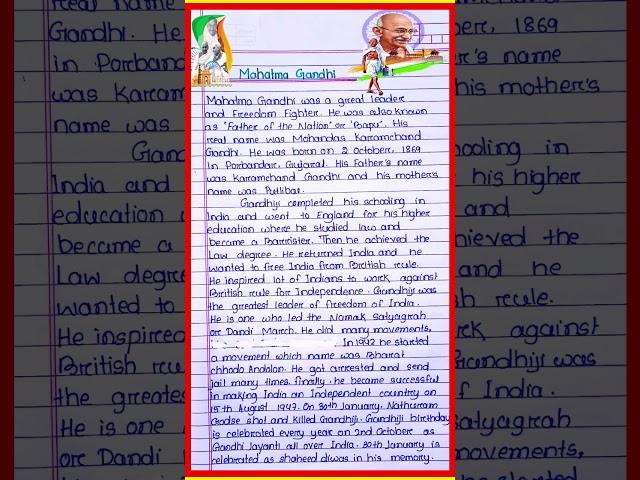 Mahatma Gandhi
Mahatma Gandhi was a great leader
and Freedom Fighter. He was also known
as 'Father of the Nation' or 'Bapu'. His
real name was Mohandas Karamchand
Gandhi. He was born on 2 october, 1869
in Porbandar, Gujarat. His Father's name
was Karamchand Gandhi and his mother's
name was Putlibai.
Gandhiji completed his schooling in
India and went to England for his higher
education where he studied law and
became a Barrister. Then he achieved the
Law degree. He returned India and he
wanted to free India from British rule.
He inspired lot of Indians to work against
British rule for Independence. Gandhiji was
the greatest leader of freedom of India.
He is one who led the Namak Satyagrah
or Dandi March. He did many movements,
. In 1942 he started
a movement which name was Bharat
chhodo Andolon. He got arrested and send
jail many times. finally, he became successful
in making India an Independent country on
15th August 1947. On 30th January, Nathuram
Godse shot and killed Gandhiji. Gandhiji birthday
is celebrated every year on 2nd October as
Gandhi Jayanti all over India. 30th January is
celebrated as shaheed diwas in his memory.